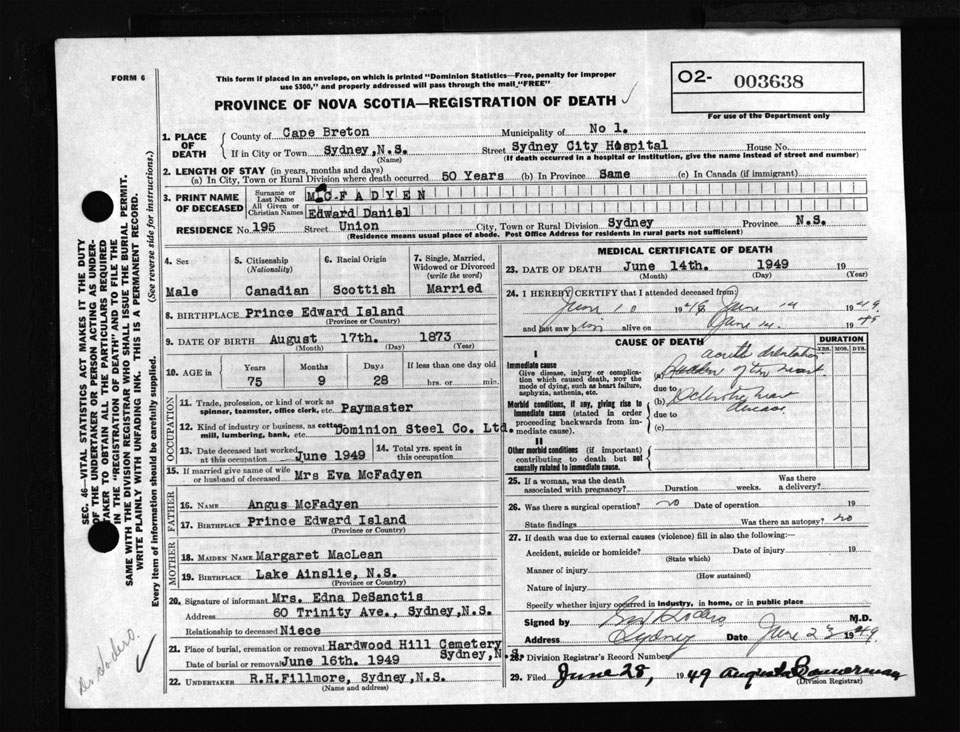 FORM 6
This form if placed in an envelope, on which is printed "Dominion Statistics—Free, penalty for improper
use $300," and properly addressed will pass through the mail "FREE"
O2- 003638
For use of the Department only
PROVINCE OF NOVA SCOTIA—REGISTRATION OF DEATH
1. PLACE OF DEATH County of Cape Breton Municipality of No 1.
If in City or Town Sydney,N.S. Street Sydney City Hospital House No.
(Name) (If death occurred in a hospital or institution, give the name instead of street and number)
2. LENGTH OF STAY (in years, months and days)
(a) In City, Town or Rural Division where death occurred 50 Years (b) In Province Same (c) In Canada (if immigrant)
3. PRINT NAME OF DECEASED Surname or Last Name McFADYEN
All Given or Christian Names Edward Daniel
RESIDENCE No. 195 Street Union City, Town or Rural Division Sydney Province N.S.
(Residence means usual place of abode. Post Office Address for residents in rural parts not sufficient)
4. Sex 5. Citizenship (Nationality) 6. Racial Origin 7. Single, Married, Widowed or Divorced (write the word)
Male Canadian Scottish Married
8. BIRTHPLACE Prince Edward Island
(Province or Country)
9. DATE OF BIRTH August 17th. 1873
(Month) (Day) (Year)
10. AGE in Years Months Days If less than one day old
75 9 28 hrs. or min.
OCCUPATION
11. Trade, profession, or kind of work as
spinner, teamster, office clerk, etc. Paymaster
12. Kind of industry or business, as cotton
mill, lumbering, bank, etc. Dominion Steel Co. Ltd.
13. Date deceased last worked at this occupation June 1949 14. Total yrs. spent in this occupation
15. If married give name of wife
or husband of deceased Mrs Eva McFadyen
FATHER
16. NAME Angus McFadyen
17. BIRTHPLACE Prince Edward Island
(Province or Country)
MOTHER
18. MAIDEN NAME Margaret MacLean
19. BIRTHPLACE Lake Ainslie, N.S.
(Province or Country)
20. Signature of informant Mrs. Edna DeSanctis
Address 60 Trinity Ave., Sydney,N.S.
Relationship to deceased Niece
21. Place of burial, cremation or removal Hardwood Hill Cemetery
Sydney,N.S.
Date of burial or removal June 16th. 1949
22. UNDERTAKER R.H.Fillmore, Sydney,N.S.
(Name and address)
MEDICAL CERTIFICATE OF DEATH
23. DATE OF DEATH June 14th. 1949 19
(Month) (Day) (Year)
24. I HEREBY CERTIFY that I attended deceased from:
June 10 19 June 14 1949
and last saw him alive on June 14 19
CAUSE OF DEATH DURATION
YRS. MOS. DYS.
I
Immediate cause
Give disease, injury or complication which caused death, not the mode of dying, such as heart failure, asphyxia, asthenia, etc.
(a) of the heart
due to
Morbid conditions, if any, giving rise to immediate cause (stated in order proceeding backwards from immediate cause).
(b) heart disease
due to
(c)
II
Other morbid conditions (if important) contributing to death but not causally related to immediate cause.
25. If a woman, was the death
associated with pregnancy? Duration weeks. Was there a delivery?
26. Was there a surgical operation? no Date of operation 19
State findings Was there an autopsy? no
27. If death was due to external causes (violence) fill in also the following:
Accident, suicide or homicide? Date of injury 19
(State which)
Manner of injury
(How sustained)
Nature of injury
Specify whether injury occurred in industry, in home, or in public place
Signed by M.D.
Address Sydney Date June 23 1949
28. Division Registrar's Record Number
29. Filed June 28, 1949
(Division Registrar)
SEC. 46—VITAL STATISTICS ACT MAKES IT THE DUTY
OF THE UNDERTAKER OR PERSON ACTING AS UNDER-
TAKER TO OBTAIN ALL THE PARTICULARS REQUIRED
IN THE "REGISTRATION OF DEATH" AND TO FILE THE
SAME WITH THE DIVISION REGISTRAR WHO SHALL ISSUE THE BURIAL PERMIT.
WRITE PLAINLY WITH UNFADING INK. THIS IS A PERMANENT RECORD.
Every item of information should be carefully supplied. (See reverse side for instructions.)